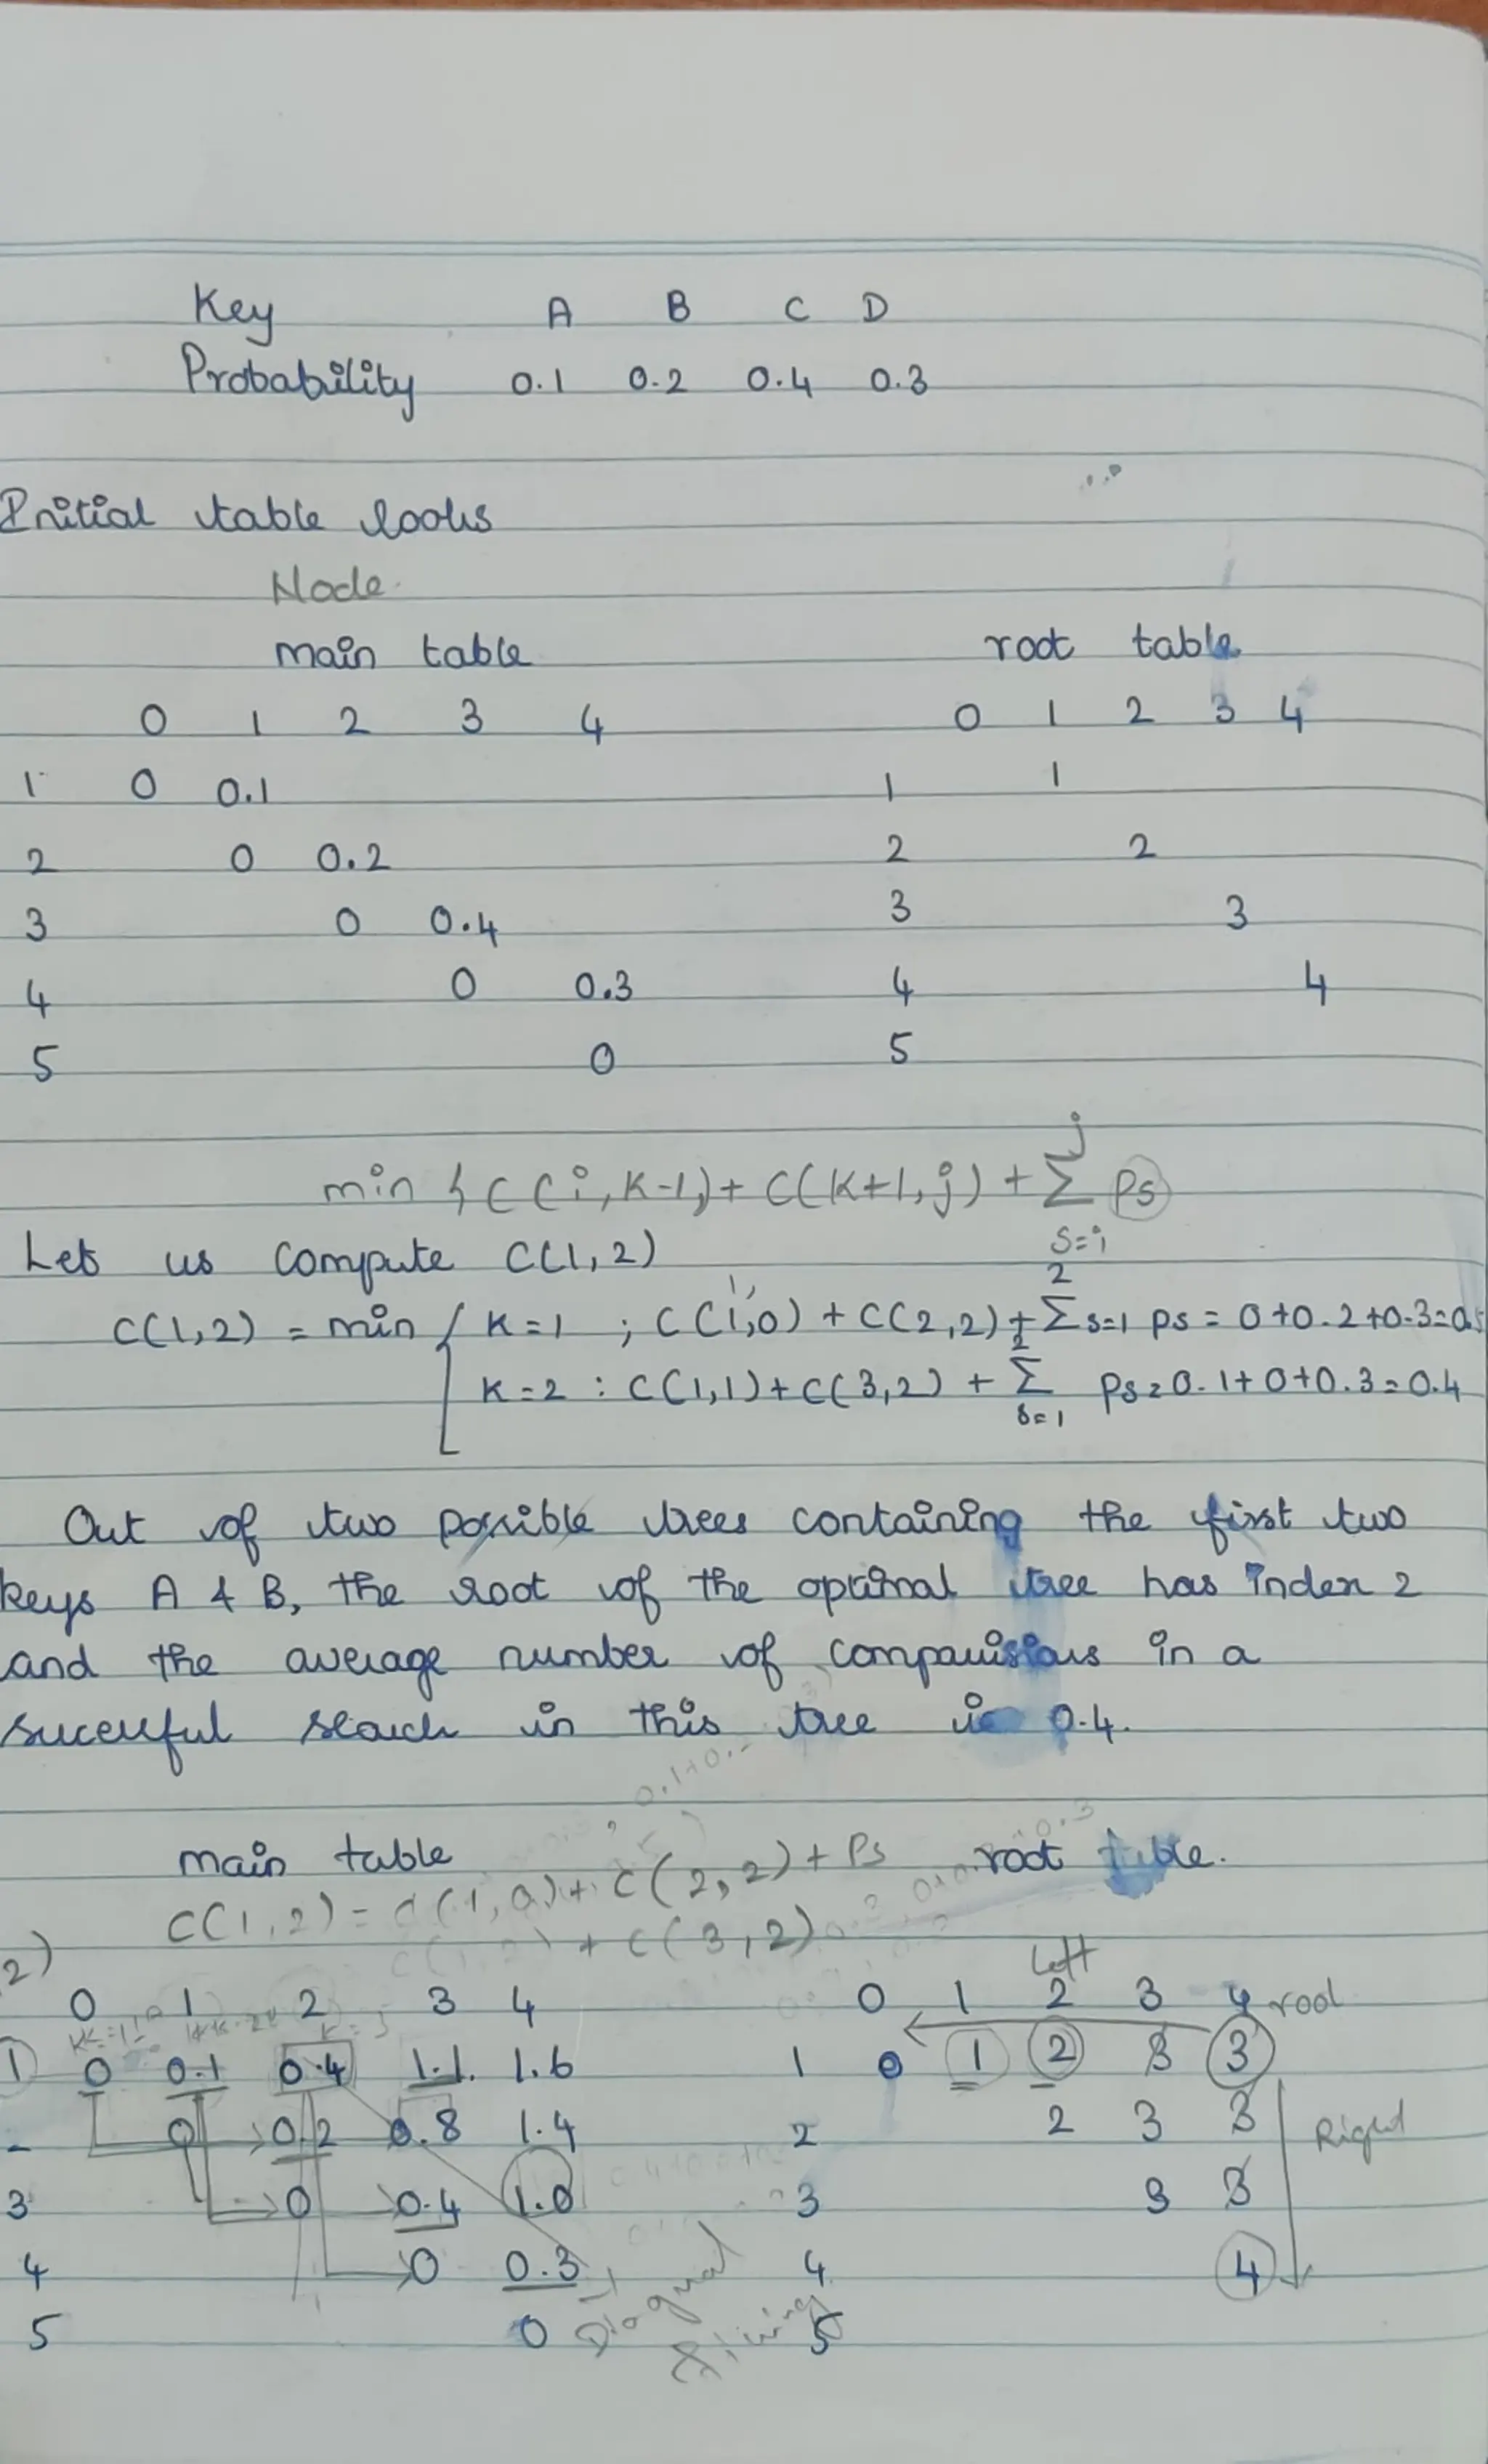 Key A B C D
Probability 0.1 0.2 0.4 0.3
Initial table looks
Node
main table root table
0 1 2 3 4 0 1 2 3 4
1 0 0.1 1 1
2 0 0.2 2 2
3 0 0.4 3 3
4 0 0.3 4 4
5 0 5
min { C(i, K-1) + C(K+1, j) + Σ j s=i Ps
Let us compute C(1,2)
C(1,2) = min { K=1 ; C(1,0) + C(2,2) + Σ 2 s=1 Ps = 0+0.2+0.3=0.5
K=2 : C(1,1) + C(3,2) + Σ 2 s=1 Ps = 0.1+0+0.3=0.4
Out of two possible trees containing the first two
keys A & B, the root of the optimal tree has index 2
and the average number of comparisions in a
sucessful search in this tree is 0.4.
main table root table.
C(1,2) = C(1,0) + C(2,2) + Ps
+ C(3,2)
2) Left
0 1 2 3 4 0 1 2 3 4 root
1 0 0.1 0.4 1.1 1.6 1 0 1 2 3 3
0 0.2 0.8 1.4 2 2 3 3 Right
3 0 0.4 1.0 3 3 3
4 0 0.3 4 4
5 0 5
Diagonal